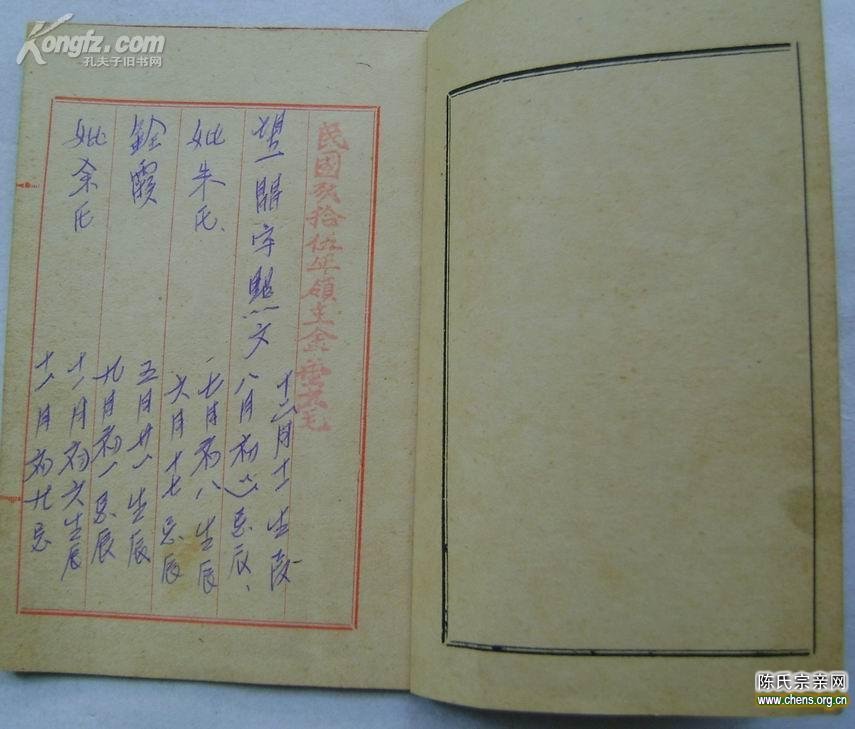 Kongfz.com
孔夫子旧书网
民國玖拾伍年領主金壹大毛
望一開字照文
十二月十一生辰
八月初三忌辰、
妣朱氏、
七月初八生辰
六月十七忌辰
銓霞
五月廿一生辰
九月初一忌辰
妣余氏
十一月初六生辰
十一月初九忌
陈氏宗亲网
www.chens.org.cn